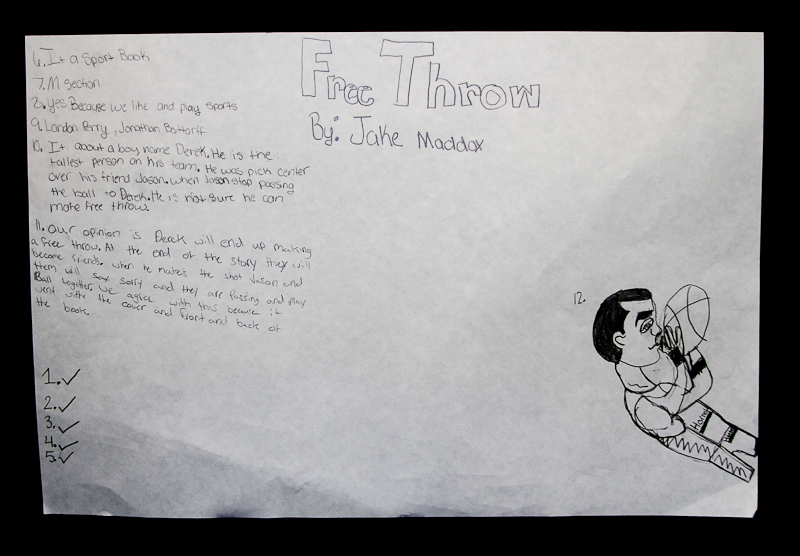 Free Throw
By: Jake Maddox
6. It a Sport Book
7. M section
8. yes Because we like and play sports
9. Landon Perry, Jonathan Bottorff
10. It about a boy name Derek. He is the
tallest person on his team. He was pick center
over his friend Jason. when Jason stop passing
the ball to Derek. He is not sure he can
make free throw.
11. our opinion is Derek will end up making
a free throw. At the end of the story they will
become friends. when he makes the shot Jason and
them will say sorry and they are passing and play
Ball together. we agree with this because it
went with the cover and front and back of
the book.
12.
1. ✓
2. ✓
3. ✓
4. ✓
5. ✓